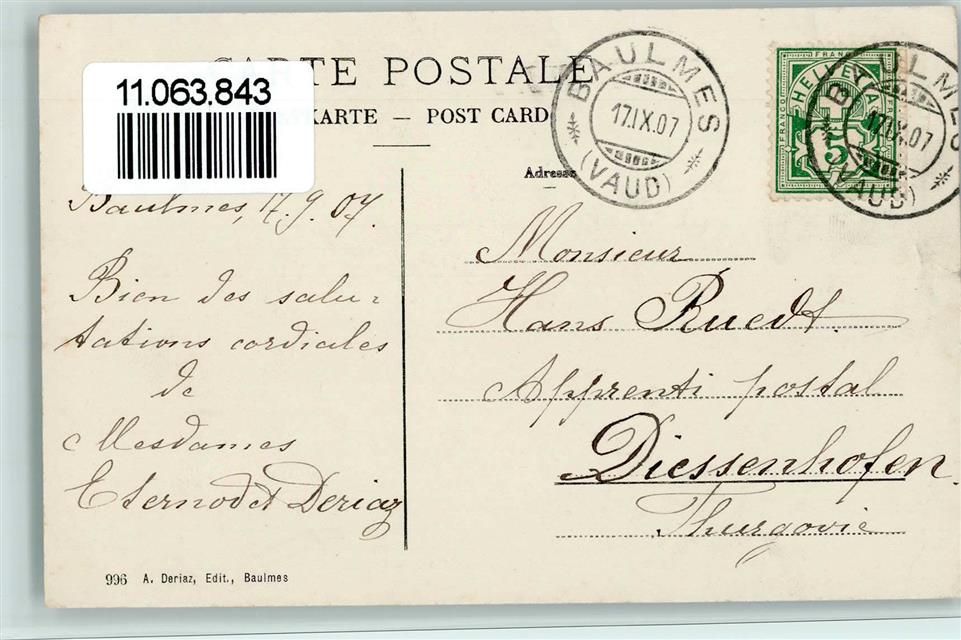 11.063.843
CARTE POSTALE
KARTE — POST CARD
Adresse
BAULMES
17.IX.07
(VAUD)
FRANCO
HELVETIA
FRANCO
FRANCO
5
BAULMES
17.IX.07
(VAUD)
Baulmes, 17.9.07.
Bien des salu=
tations cordiales
de
Mesdames
Eternod et Deriaz
Monsieur
Hans Ruedt.
Apprenti postal
Diessenhofen.
Thurgovie
996 A. Deriaz, Edit., Baulmes